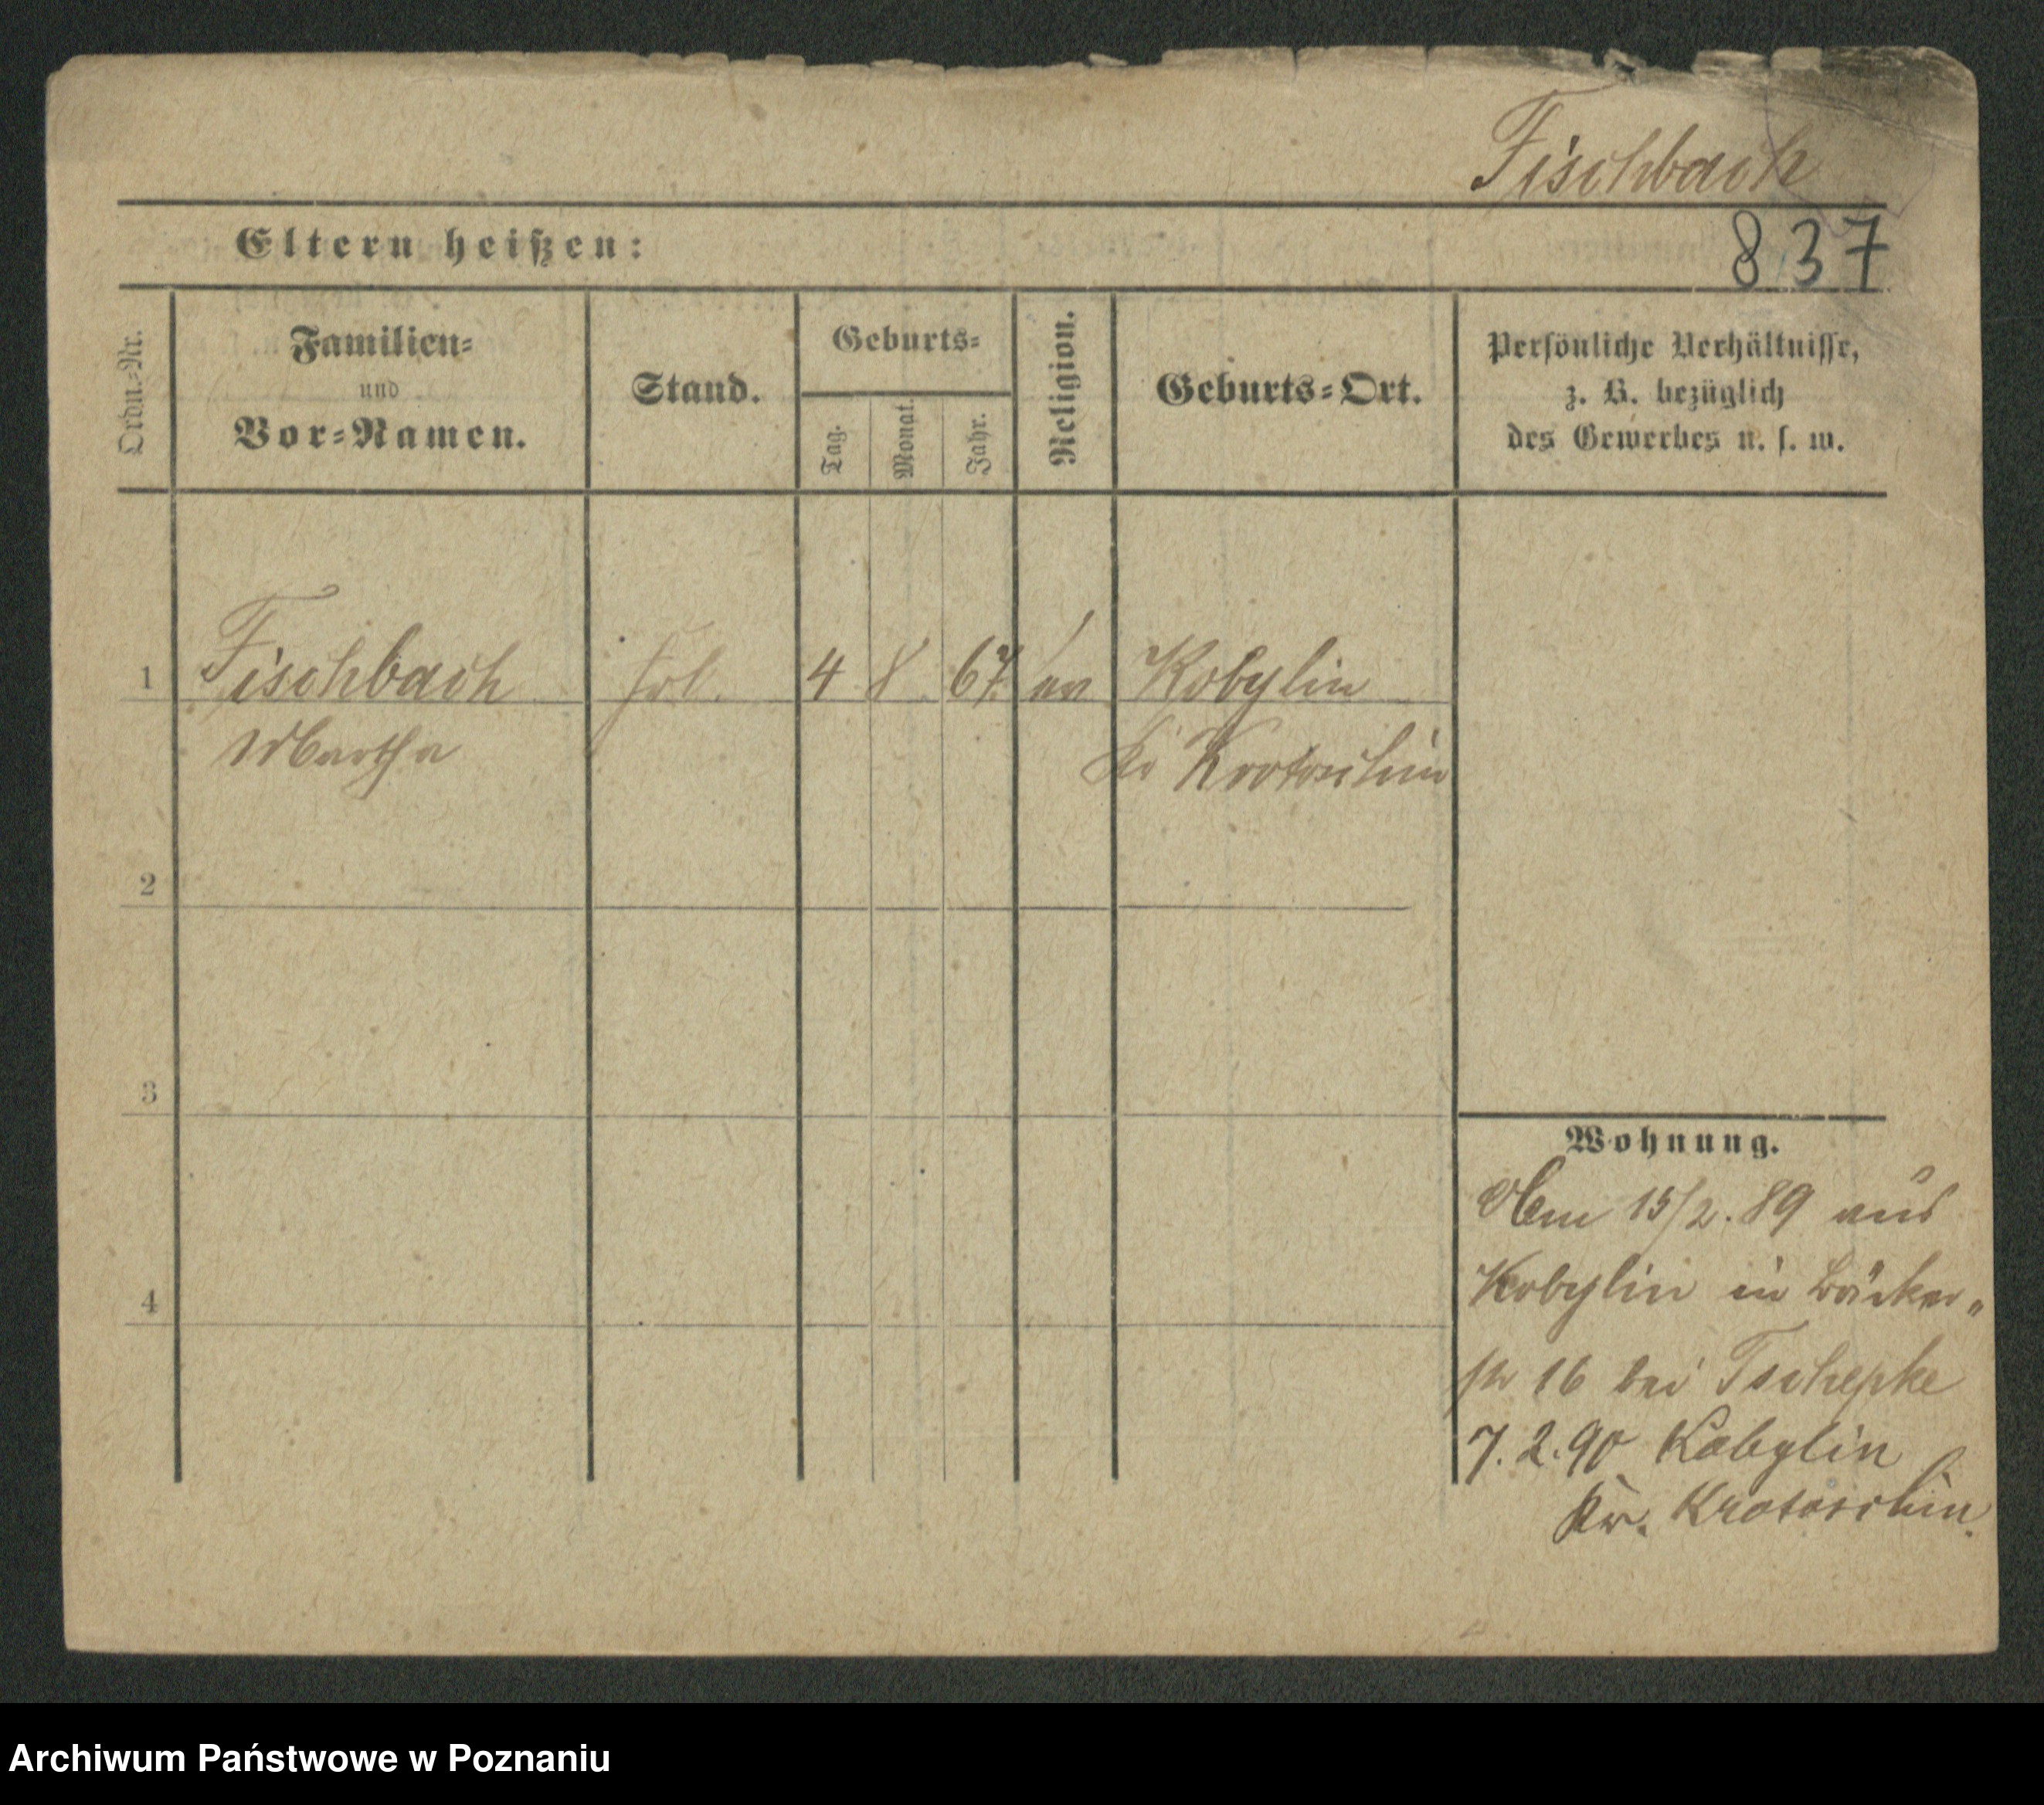 Fischbach
Eltern heißen:
837
Ordn.-Nr.
Familien-
und
Vor-Namen.
Stand.
Geburts-
Tag.
Monat.
Jahr.
Religion.
Geburts-Ort.
Persönliche Verhältnisse,
z. B. bezüglich
des Gewerbes u. s. w.
1 Fischbach 4 8 67 ev Kobylin
Martha Kr Krotoschin
2
3
4
Wohnung.
15/2.89 aus
Kobylin in Bäcker-
str 16 bei Tschepke
7.2.90 Kobylin
Kr. Krotoschin.
Archiwum Państwowe w Poznaniu